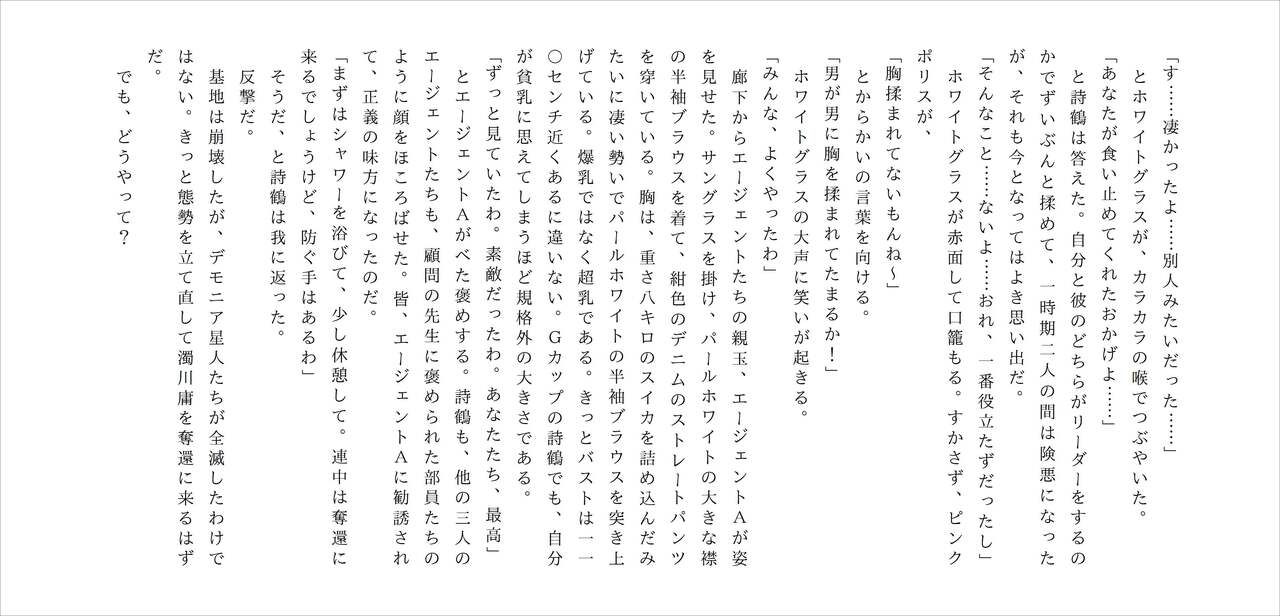 「す……凄かったよ……別人みたいだった……」
とホワイトグラスが、カラカラの喉でつぶやいた。
「あなたが食い止めてくれたおかげよ……」
と詩鶴は答えた。自分と彼のどちらがリーダーをするの
かでずいぶんと揉めて、一時期二人の間は険悪になった
が、それも今となってはよき思い出だ。
「そんなこと……ないよ……おれ、一番役立たずだったし」
ホワイトグラスが赤面して口籠もる。すかさず、ピンク
ポリスが、
「胸揉まれてないもんね〜」
とからかいの言葉を向ける。
「男が男に胸を揉まれてたまるか！」
ホワイトグラスの大声に笑いが起きる。
「みんな、よくやったわ」
廊下からエージェントたちの親玉、エージェントAが姿
を見せた。サングラスを掛け、パールホワイトの大きな襟
の半袖ブラウスを着て、紺色のデニムのストレートパンツ
を穿いている。胸は、重さ八キロのスイカを詰め込んだみ
たいに凄い勢いでパールホワイトの半袖ブラウスを突き上
げている。爆乳ではなく超乳である。きっとバストは一一
〇センチ近くあるに違いない。Gカップの詩鶴でも、自分
が貧乳に思えてしまうほど規格外の大きさである。
「ずっと見ていたわ。素敵だったわ。あなたたち、最高」
とエージェントAがべた褒めする。詩鶴も、他の三人の
エージェントたちも、顧問の先生に褒められた部員たちの
ように顔をほころばせた。皆、エージェントAに勧誘され
て、正義の味方になったのだ。
「まずはシャワーを浴びて、少し休憩して。連中は奪還に
来るでしょうけど、防ぐ手はあるわ」
そうだ、と詩鶴は我に返った。
反撃だ。
基地は崩壊したが、デモニア星人たちが全滅したわけで
はない。きっと態勢を立て直して濁川庸を奪還に来るはず
だ。
でも、どうやって？